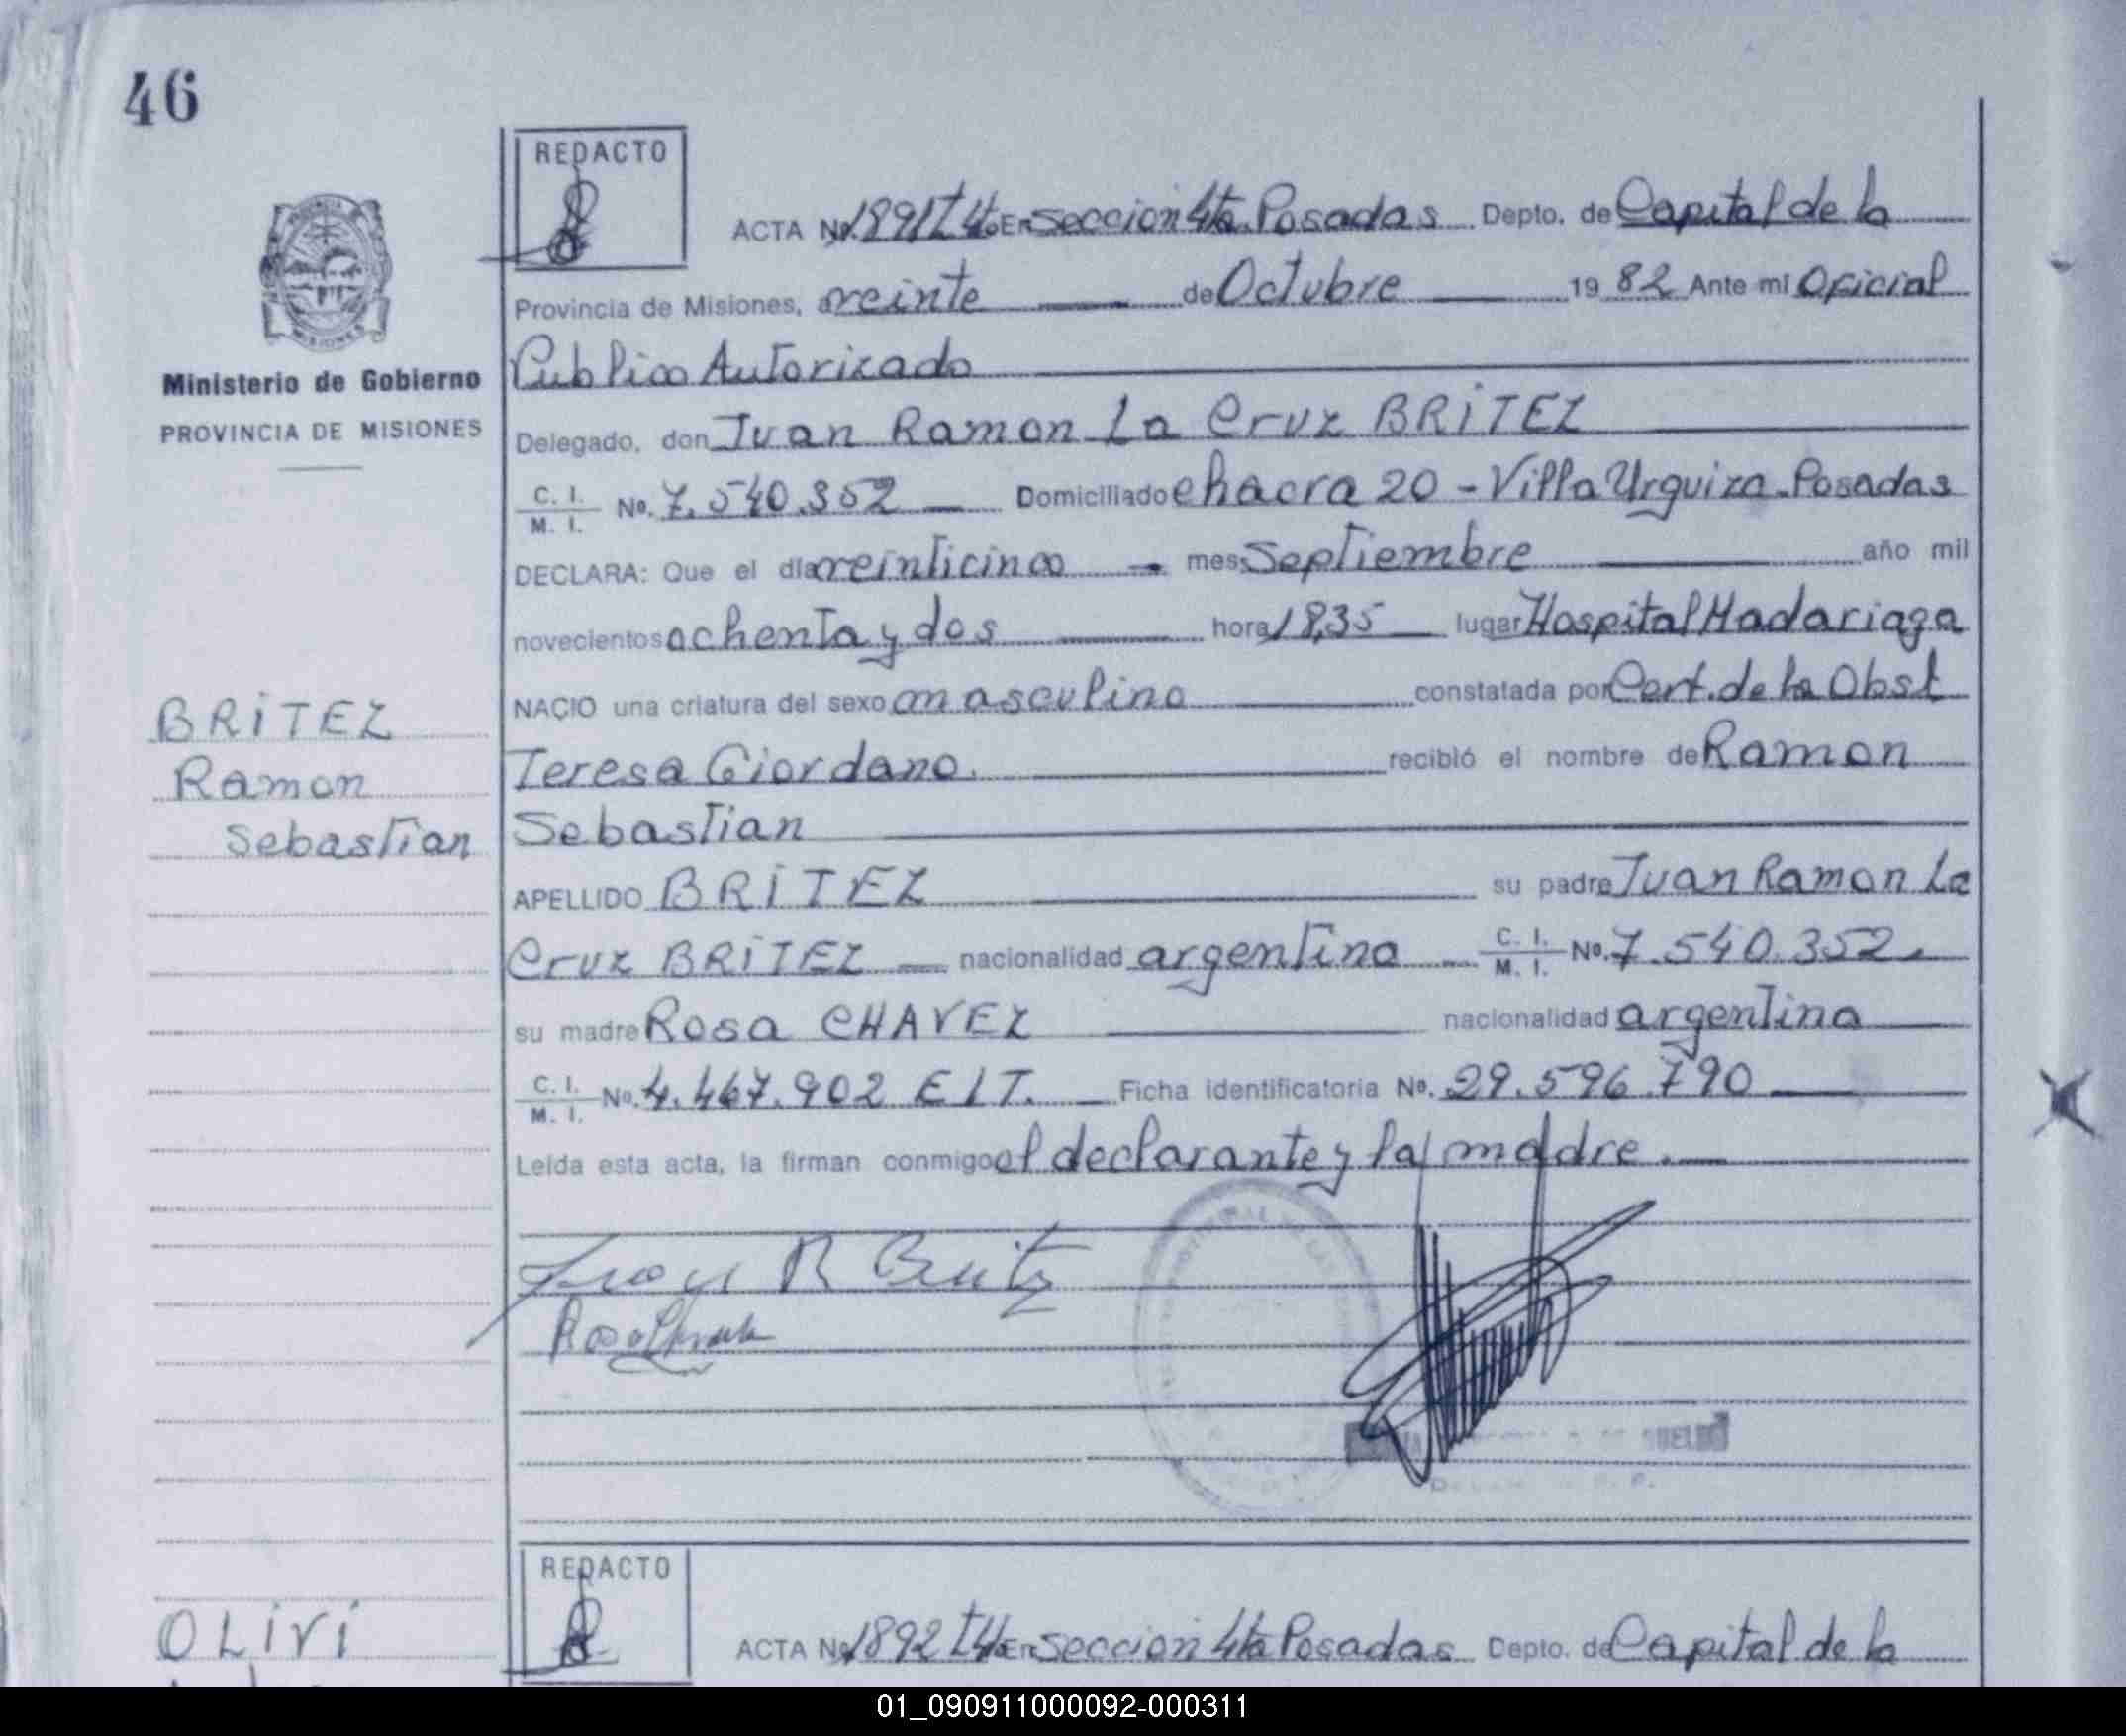 46
REDACTO
ACTA No. 1891 T 4to En seccion 4ta Posadas Depto. de Capital de la
Provincia de Misiones, a veinte de Octubre 1982 Ante mi Oficial
Ministerio de Gobierno
PROVINCIA DE MISIONES
Publico Autorizado
Delegado, don Juan Ramon La Cruz BRITEZ
C. I. / M. I. No. 7.540.352 Domiciliado chacra 20 - Villa Urquiza - Posadas
DECLARA: Que el día veinticinco mes Septiembre año mil
novecientos ochenta y dos hora 18,35 lugar Hospital Madariaga
NACIO una criatura del sexo masculino constatada por Cert. de la Obst
Teresa Giordano. recibió el nombre de Ramon
Sebastian
BRITEZ
Ramon
Sebastian
APELLIDO BRITEZ su padre Juan Ramon La
Cruz BRITEZ nacionalidad argentina C. I. / M. I. No. 7.540.352.
su madre Rosa CHAVEZ nacionalidad argentina
C. I. / M. I. No. 4.467.902 E/T. Ficha identificatoria No. 29.596.790
Leída esta acta, la firman conmigo el declarante y la madre.
Juan R Britez
REDACTO
OLIVI
ACTA No. 1892 T 4to En seccion 4ta Posadas Depto. de Capital de la
01_090911000092-000311